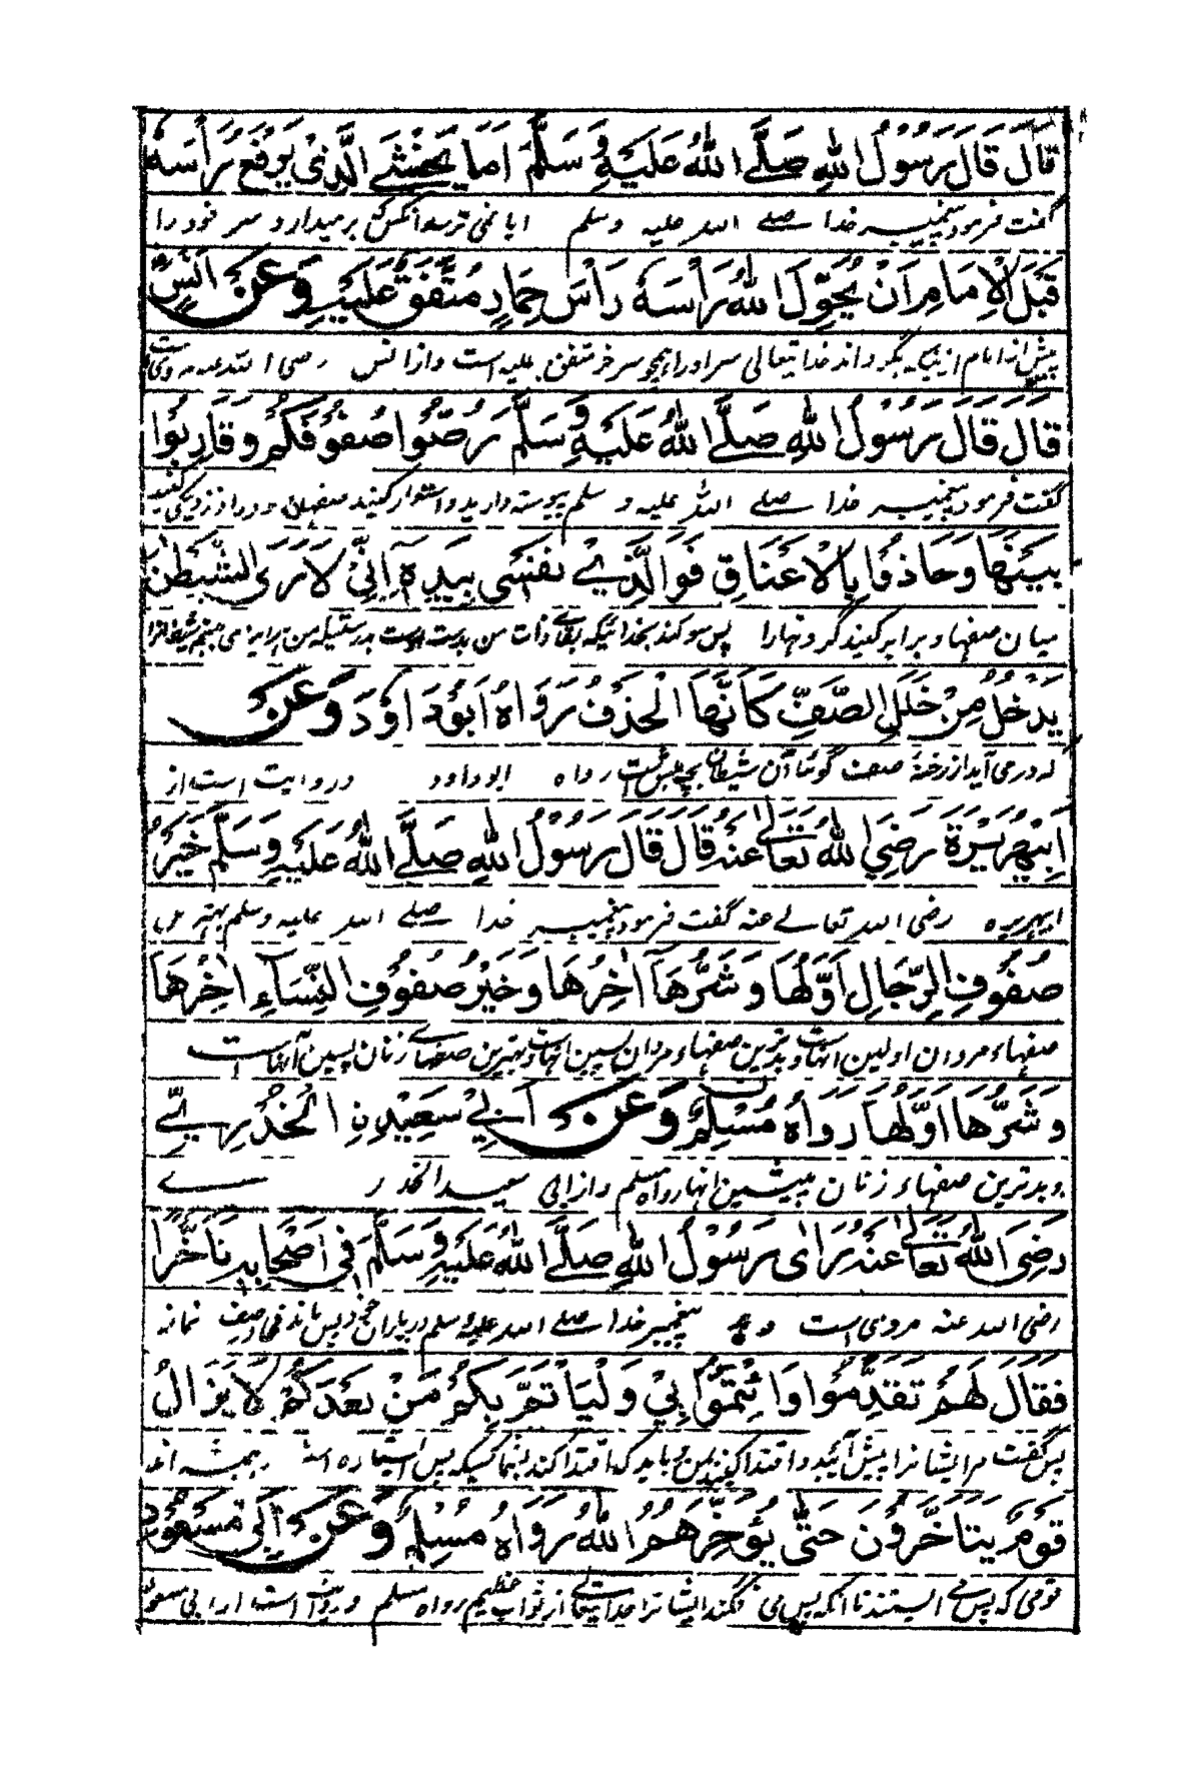 قَالَ قَالَ رَسُوْلُ اللهِ صَلَّى اللهُ عَلَيْهِ وَسَلَّمَ اَمَا يَخْشَے الَّذِیْ يَرْفَعُ رَأْسَهٗ
گفت فرمود پیغمبر خدا صلے اللہ علیہ وسلم ایا نمی ترسد آنکس که برمیدارد سر خود را
قَبْلَ الْاِمَامِ اَنْ يُّحَوِّلَ اللهُ رَأْسَهٗ رَأْسَ حِمَارٍ مُتَّفَقٌ عَلَيْهِ وَعَنْ اَنَسٍ
پیش از امام از اینکه بگرداند خدا تعالی سر او را همچو سر خر متفق علیه است و از انس رضی اللہ عنه
قَالَ قَالَ رَسُوْلُ اللهِ صَلَّے اللهُ عَلَيْهِ وَسَلَّمَ رُصُّوْا صُفُوْفَكُمْ وَقَارِبُوْا
گفت فرمود پیغمبر خدا صلے اللہ علیہ و سلم پیوسته دارید و استوار کنید صفهای خود را و نزدیکی کنید
بَيْنَهَا وَحَاذُوْا بِالْاَعْنَاقِ فَوَ الَّذِیْ نَفْسِیْ بِيَدِهٖ اِنِّیْ لَاَرَی الشَّيْطٰنَ
میان صفها و برابر کنید گردنها را پس سوگند بخدائیکه بقای ذات من بدست اوست بدرستیکه من هرآینه می بینم شیطان را
يَدْخُلُ مِنْ خَلَلِ الصَّفِّ كَاَنَّهَا الْحَذَفُ رَوَاهُ اَبُوْدَاوٗدَ وَعَنْ
که درمی آید از رخنهٔ صف گویا آن شیطان بچه میش است رواه ابوداود و روایت است از
اَبِیْهُرَيْرَةَ رَضِیَ اللهُ تَعَالٰی عَنْهُ قَالَ قَالَ رَسُوْلُ اللهِ صَلَّے اللهُ عَلَيْهِ وَسَلَّمَ خَيْرُ
ابیهریره رضی اللہ تعالے عنه گفت فرمود پیغمبر خدا صلے اللہ علیہ وسلم بهترین
صُفُوْفِ الرِّجَالِ اَوَّلُهَا وَشَرُّهَا اٰخِرُهَا وَخَيْرُ صُفُوْفِ النِّسَآءِ اٰخِرُهَا
صفهاء مردان اولین آنهاست و بدترین صفهاء مردان پسین آنهاست و بهترین صفهاے زنان پسین آنهاست
وَشَرُّهَا اَوَّلُهَا رَوَاهُ مُسْلِمٌ وَعَنْ اَبِیْ سَعِيْدِنِ الْخُدْرِیِّ
و بدترین صفهاء زنان پیشین انها رواه مسلم و از ابی سعید الخدرے
رَضِیَ اللهُ تَعَالٰی عَنْهُ رَاٰی رَسُوْلُ اللهِ صَلَّے اللهُ عَلَيْهِ وَسَلَّمَ فِیْ اَصْحَابِهٖ تَاَخُّرًا
رضی اللہ عنه مروی است دید پیغمبر خدا صلے اللہ علیہ وسلم در یاران خود پس ماندنی در صف نماز
فَقَالَ لَهُمْ تَقَدَّمُوْا وَائْتَمُّوْا بِیْ وَلْيَاْتَمَّ بِكُمْ مَنْ بَعْدَكُمْ لَا يَزَالُ
پس گفت مر ایشانرا پیش آئید و اقتدا کنید بمن و باید که اقتدا کند بشما کسیکه پس استاده است همیشه اند
قَوْمٌ يَتَاَخَّرُوْنَ حَتّٰی يُؤَخِّرَهُمُ اللهُ رَوَاهُ مُسْلِمٌ وَعَنْ اَبِیْ مَسْعُوْدٍ
قومی که پس می ایستند تا آنکه پس می فگند ایشانرا خدایتعالے از ثواب عظیم رواه مسلم و روایت است از ابی مسعود